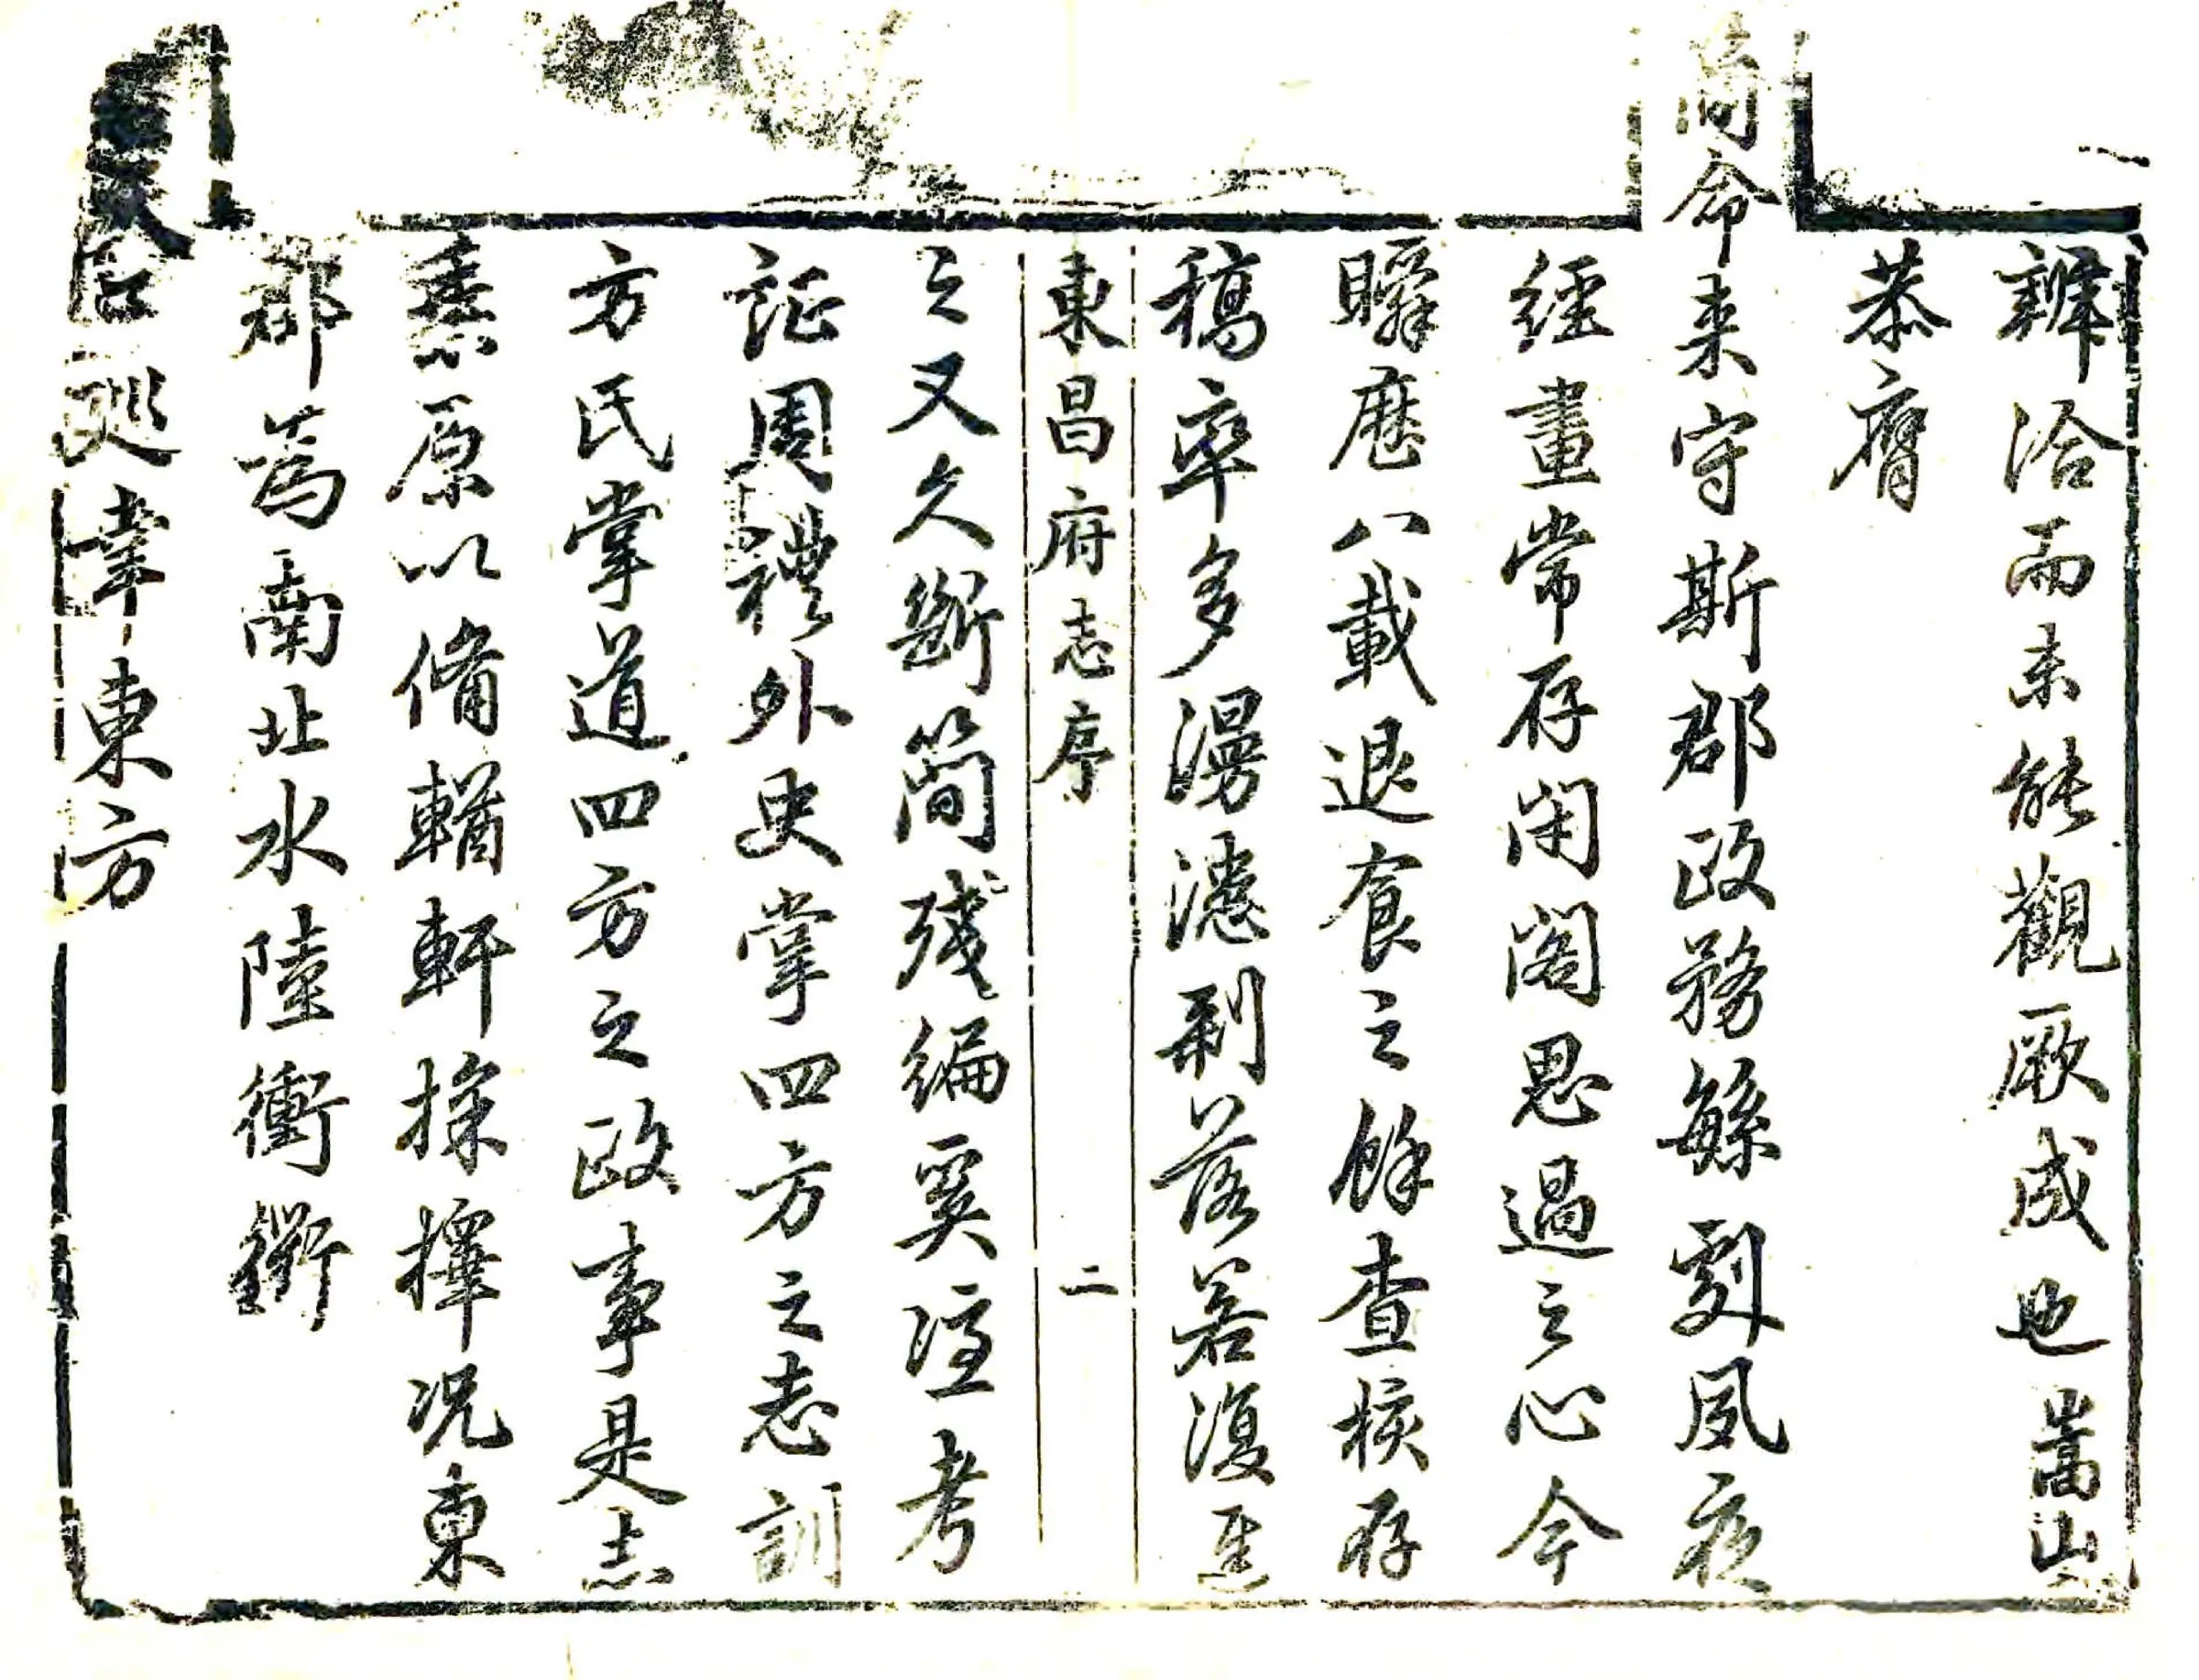 辦洽而未能觀厥成也嵩山
恭膺
簡命来守斯郡政務繇劇夙夜
經畫常存閉閣思過之心今
瞬歷八載退食之餘查核存
稿率多漫漶剥落若復遲
東昌府志序 二
之又久斷簡殘編奚從考
証周禮外史掌四方之志訓
方氏掌道四方之政事是志
乗原以備輶軒採擇况東
郡為南北水陸衝衢
巡幸東方